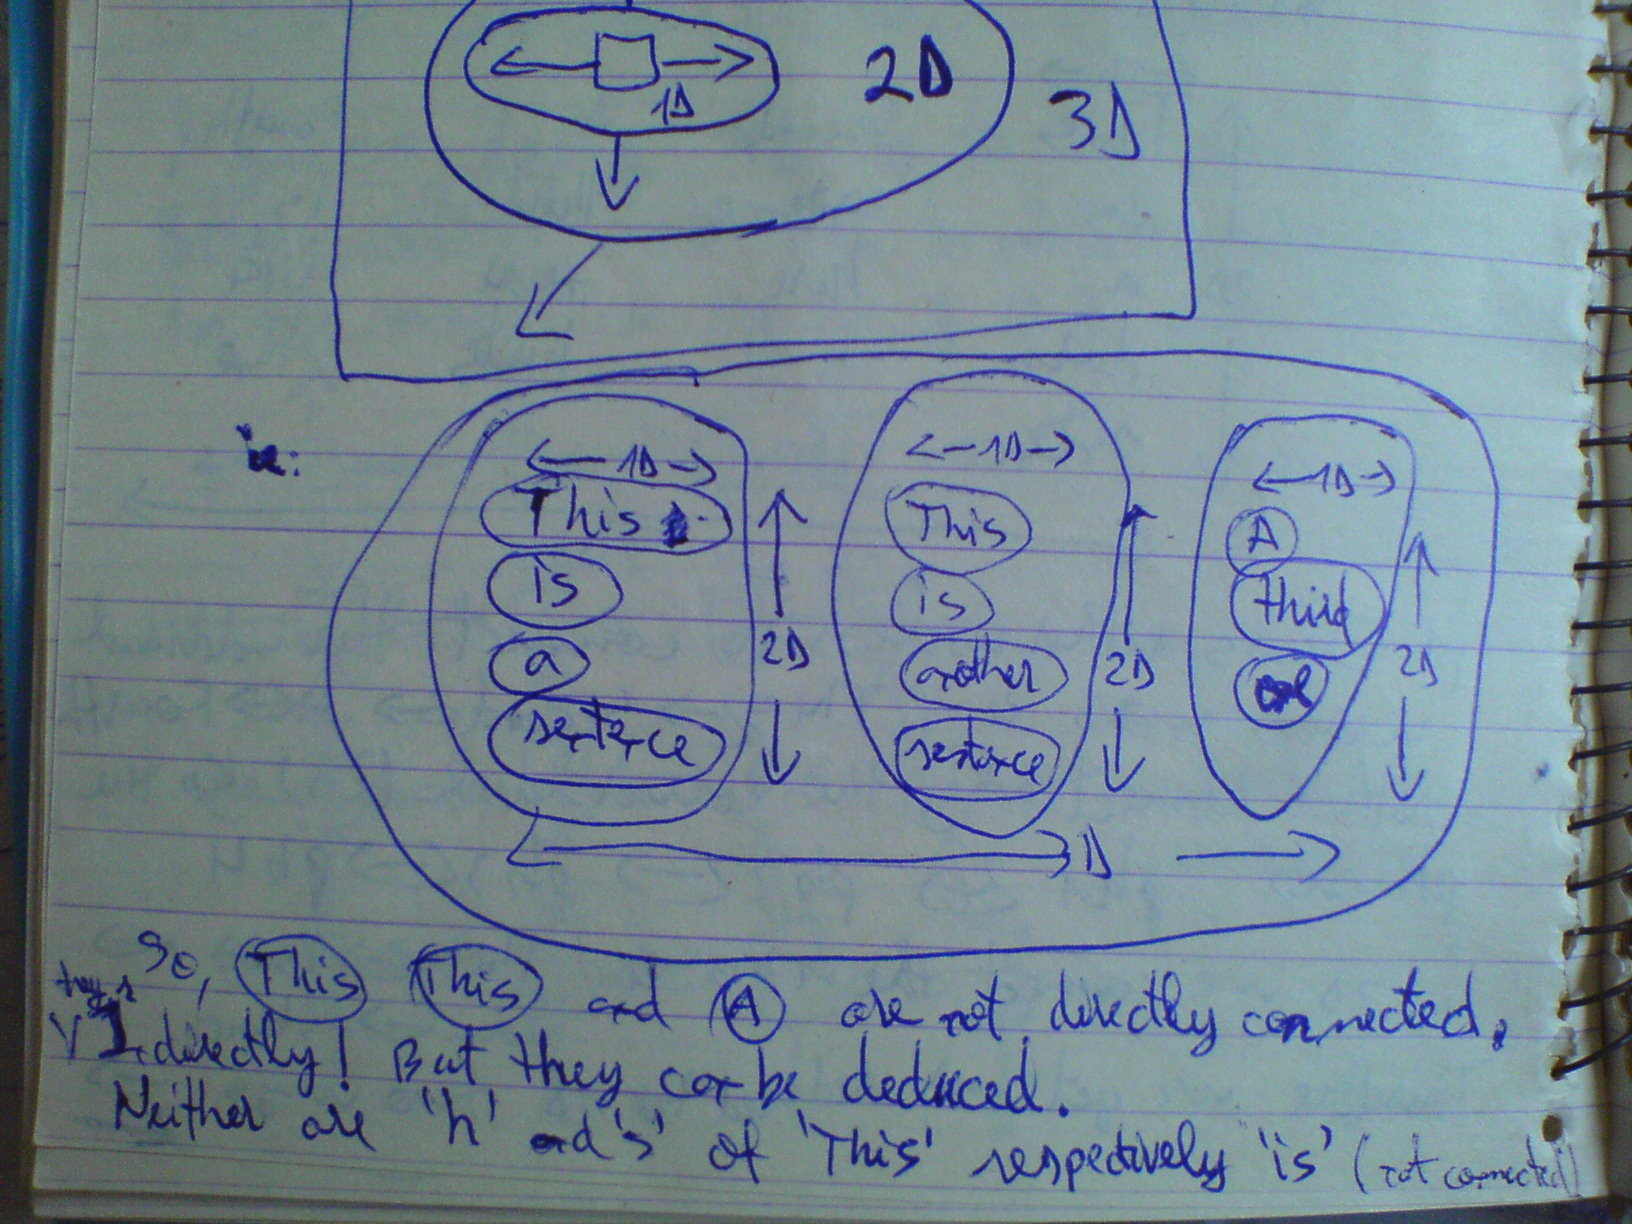 1D
2D
3D
ie:
1D
This
is
a
sentence
2D
1D
This
is
another
sentence
2D
1D
A
third
one
2D
3D
So, This This and A are not directly connected.
they're
Indirectly! But they can be deduced.
Neither are 'h' and 's' of 'This' respectively 'is' (not connected)